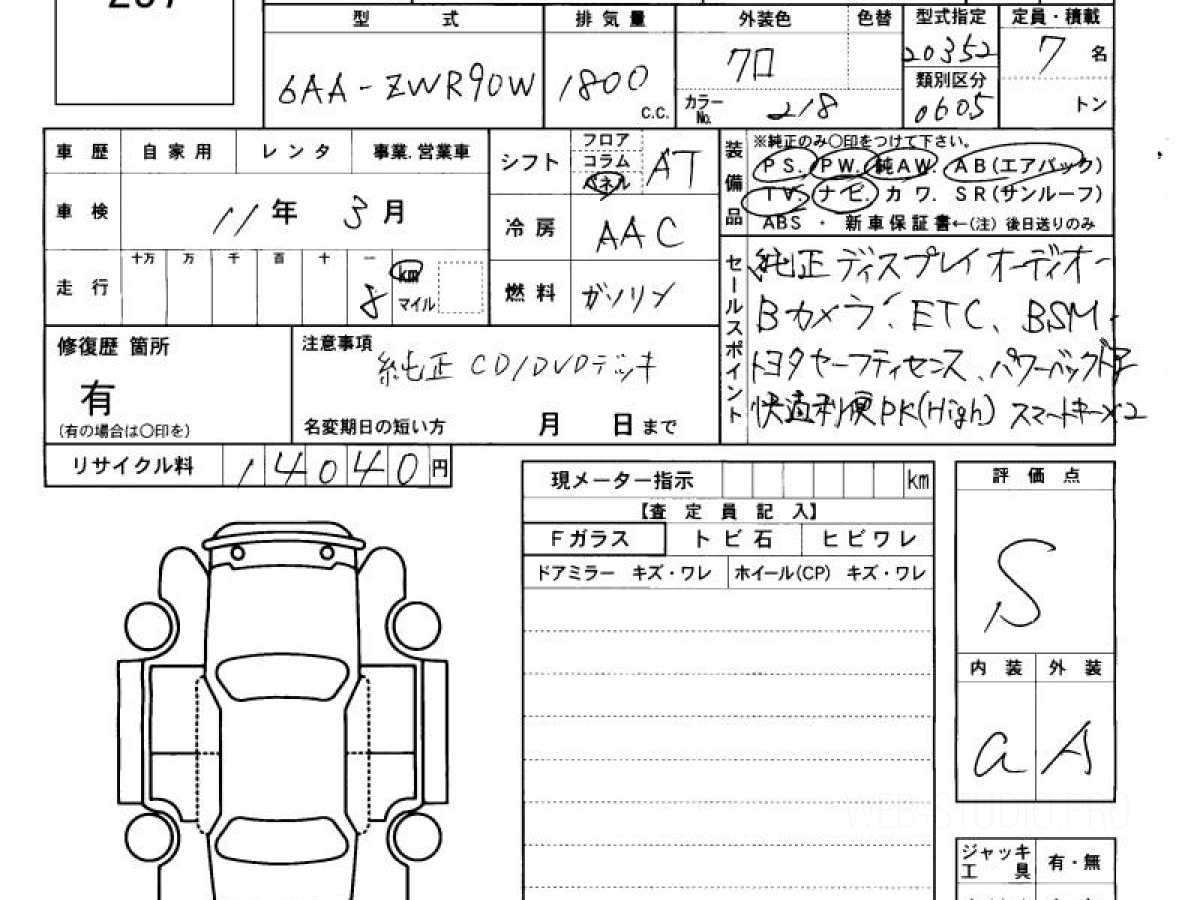 型 式 排気量 外装色 色替 型式指定 定員・積載
6AA-ZWR90W 1800 c.c. クロ 20352 7 名
カラーNo. 218 類別区分 0605 トン
車歴 自家用 レンタ 事業.営業車
車検 11年 3月
走行 十万 万 千 百 十 一 8 km マイル
シフト フロア コラム パネル AT
冷房 AAC
燃料 ガソリン
装備品 ※純正のみ〇印をつけて下さい。
PS. PW. 純AW. AB(エアバック)
TV. ナビ. カワ. SR(サンルーフ)
ABS ・ 新車保証書←(注) 後日送りのみ
セールスポイント
純正ディスプレイオーディオー
Bカメラ、ETC、BSM、
トヨタセーフティセンス、パワーバックドア
快適利便PK(High) スマートキー×2
修復歴 箇所
有
(有の場合は〇印を)
注意事項
純正 CD/DVDデッキ
名変期日の短い方 月 日まで
リサイクル料 14040円
現メーター指示 km
【査定員記入】
Fガラス トビ石 ヒビワレ
ドアミラー キズ・ワレ ホイール(CP) キズ・ワレ
評価点
S
内装 外装
a A
WEB-STUDIO.PRO
ジャッキ工具 有・無